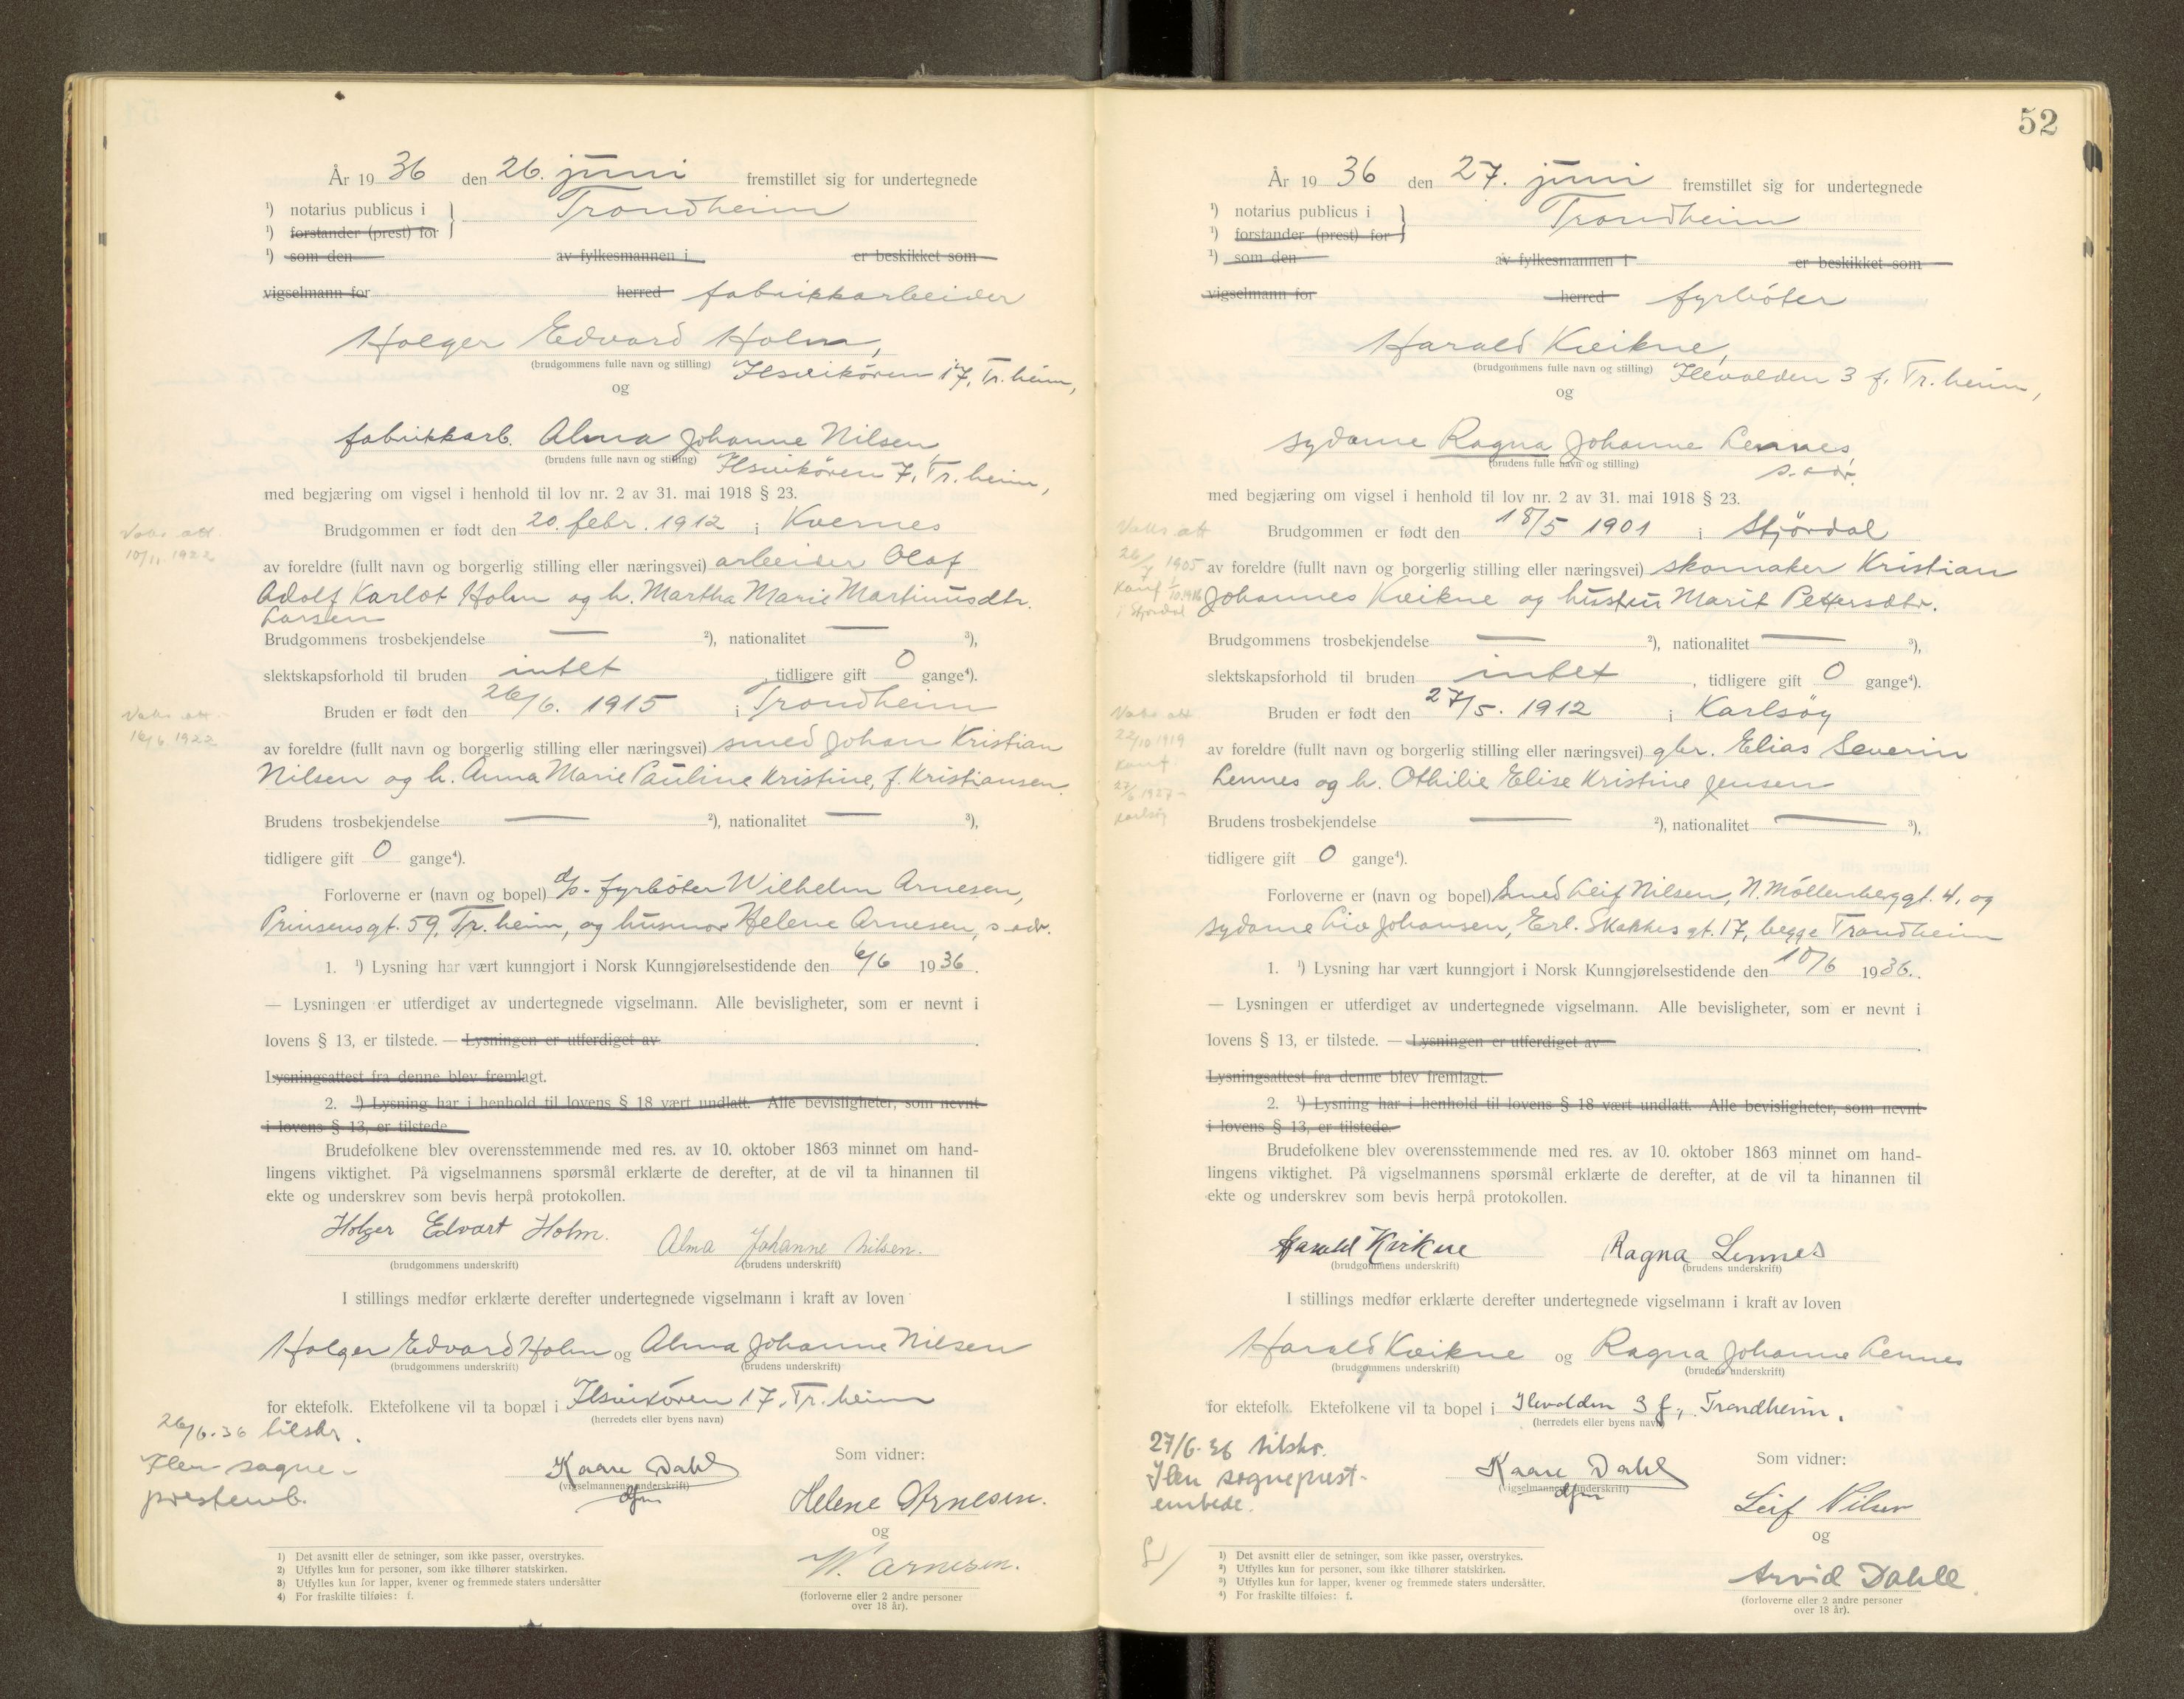 År 19 36 den 26. juni fremstillet sig for undertegnede
¹) notarius publicus i
Trondheim
¹) forstander (prest) for
¹) som den av fylkesmannen i er beskikket som
vigselmann for herred fabrikkarbeider
Holger Edvard Holm,
(brudgommens fulle navn og stilling) Ilsvikören 17, Tr.heim,
og
fabrikkarb. Alma Johanne Nilsen,
(brudens fulle navn og stilling) Ilsvikören 7, Tr.heim,
med begjæring om vigsel i henhold til lov nr. 2 av 31. mai 1918 § 23.
Vaks. att.
10/11 1922
Brudgommen er født den 20. febr. 1912 i Kvernes
av foreldre (fullt navn og borgerlig stilling eller næringsvei) arbeider Olaf
Adolf Karlot Holm og h. Martha Marie Martinusdtr.
Larsen
Brudgommens trosbekjendelse — ²), nationalitet — ³),
slektskapsforhold til bruden intet, tidligere gift 0 gange⁴).
Vaks. att.
16/6 1922
Bruden er født den 26/6. 1915 i Trondheim
av foreldre (fullt navn og borgerlig stilling eller næringsvei) smed Johan Kristian
Nilsen og h. Anna Marie Pauline Kristine, f. Kristiansen.
Brudens trosbekjendelse — ²), nationalitet — ³),
tidligere gift 0 gange⁴).
Forloverne er (navn og bopel) d/s.-fyrböter Wilhelm Arnesen,
Prinsensgt. 59, Tr.heim, og husmor Helene Arnesen, s. adr.
1. ¹) Lysning har vært kunngjort i Norsk Kunngjørelsestidende den 6/6 1936.
— Lysningen er utferdiget av undertegnede vigselmann. Alle bevisligheter, som er nevnt i
lovens § 13, er tilstede. — Lysningen er utferdiget av .
Lysningsattest fra denne blev fremlagt.
2. ¹) Lysning har i henhold til lovens § 18 vært undlatt. Alle bevisligheter, som nevnt
i lovens § 13, er tilstede.
Brudefolkene blev overensstemmende med res. av 10. oktober 1863 minnet om hand-
lingens viktighet. På vigselmannens spørsmål erklærte de derefter, at de vil ta hinannen til
ekte og underskrev som bevis herpå protokollen.
Holger Edvart Holm. Alma Johanne Nilsen.
(brudgommens underskrift) (brudens underskrift)
I stillings medfør erklærte derefter undertegnede vigselmann i kraft av loven
Holger Edvard Holm og Alma Johanne Nilsen
(brudgommens underskrift) (brudens underskrift)
for ektefolk. Ektefolkene vil ta bopæl i Ilsvikören 17, Tr.heim
(herredets eller byens navn)
26/6.36 tilskr.
Ilen sogne-
prestemb.
Kaare Dahl
(vigselmannens underskrift)
dfm
Som vidner:
Helene Arnesen.
og
W. Arnesen.
(forloverne eller 2 andre personer
over 18 år).
1) Det avsnitt eller de setninger, som ikke passer, overstrykes.
2) Utfylles kun for personer, som ikke tilhører statskirken.
3) Utfylles kun for lapper, kvener og fremmede staters undersåtter
4) For fraskilte tilføies: f.
52
År 19 36 den 27. juni fremstillet sig for undertegnede
¹) notarius publicus i
Trondheim
¹) forstander (prest) for
¹) som den av fylkesmannen i er beskikket som
vigselmann for herred fyrböter
Harald Kvikne,
(brudgommens fulle navn og stilling) Ilevolden 3 f, Tr.heim,
og
sydame Ragna Johanne Lennes,
(brudens fulle navn og stilling) s. adr.
med begjæring om vigsel i henhold til lov nr. 2 av 31. mai 1918 § 23.
Vaks. att
26/7 1905
Konf. 1/10.1916
i Stjørdal
Brudgommen er født den 18/5 1901 i Stjördal
av foreldre (fullt navn og borgerlig stilling eller næringsvei) skomaker Kristian
Johannes Kvikne og hustru Marit Pettersdtr.
Brudgommens trosbekjendelse — ²), nationalitet — ³),
slektskapsforhold til bruden intet, tidligere gift 0 gange⁴).
Vaks. att.
22/10 1919
Konf.
27/6 1927 -
Karlsöy
Bruden er født den 27/5. 1912 i Karlsöy
av foreldre (fullt navn og borgerlig stilling eller næringsvei) gbr. Elias Severin
Lennes og h. Othilie Elise Kristine Jensen
Brudens trosbekjendelse — ²), nationalitet — ³),
tidligere gift 0 gange⁴).
Forloverne er (navn og bopel) Smed Leif Nilsen, N. Möllenberggt. 4, og
sydame Liv Johansen, Erl. Skakkes gt. 17, begge Trondheim
1. ¹) Lysning har vært kunngjort i Norsk Kunngjørelsestidende den 10/6 1936.
— Lysningen er utferdiget av undertegnede vigselmann. Alle bevisligheter, som er nevnt i
lovens § 13, er tilstede. — Lysningen er utferdiget av .
Lysningsattest fra denne blev fremlagt.
2. ¹) Lysning har i henhold til lovens § 18 vært undlatt. Alle bevisligheter, som nevnt
i lovens § 13, er tilstede.
Brudefolkene blev overensstemmende med res. av 10. oktober 1863 minnet om hand-
lingens viktighet. På vigselmannens spørsmål erklærte de derefter, at de vil ta hinannen til
ekte og underskrev som bevis herpå protokollen.
Harald Kvikne Ragna Lennes
(brudgommens underskrift) (brudens underskrift)
I stillings medfør erklærte derefter undertegnede vigselmann i kraft av loven
Harald Kvikne og Ragna Johanne Lennes
(brudgommens underskrift) (brudens underskrift)
for ektefolk. Ektefolkene vil ta bopel i Ilevolden 3 f, Trondheim.
(herredets eller byens navn)
27/6-36 tilskr.
Ilen sogneprest-
embede.
Kaare Dahl
(vigselmannens underskrift)
dfm
Som vidner:
Leif Nilsen
og
Arvid Dahle
(forloverne eller 2 andre personer
over 18 år).
¹) Det avsnitt eller de setninger, som ikke passer, overstrykes.
²) Utfylles kun for personer, som ikke tilhører statskirken.
³) Utfylles kun for lapper, kvener og fremmede staters undersåtter.
⁴) For fraskilte tilføies: f.